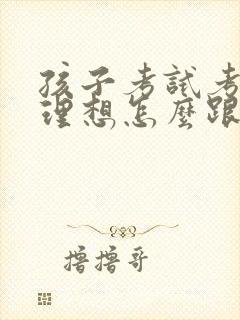 孩子考試考
理想怎麼跟
擼擼哥